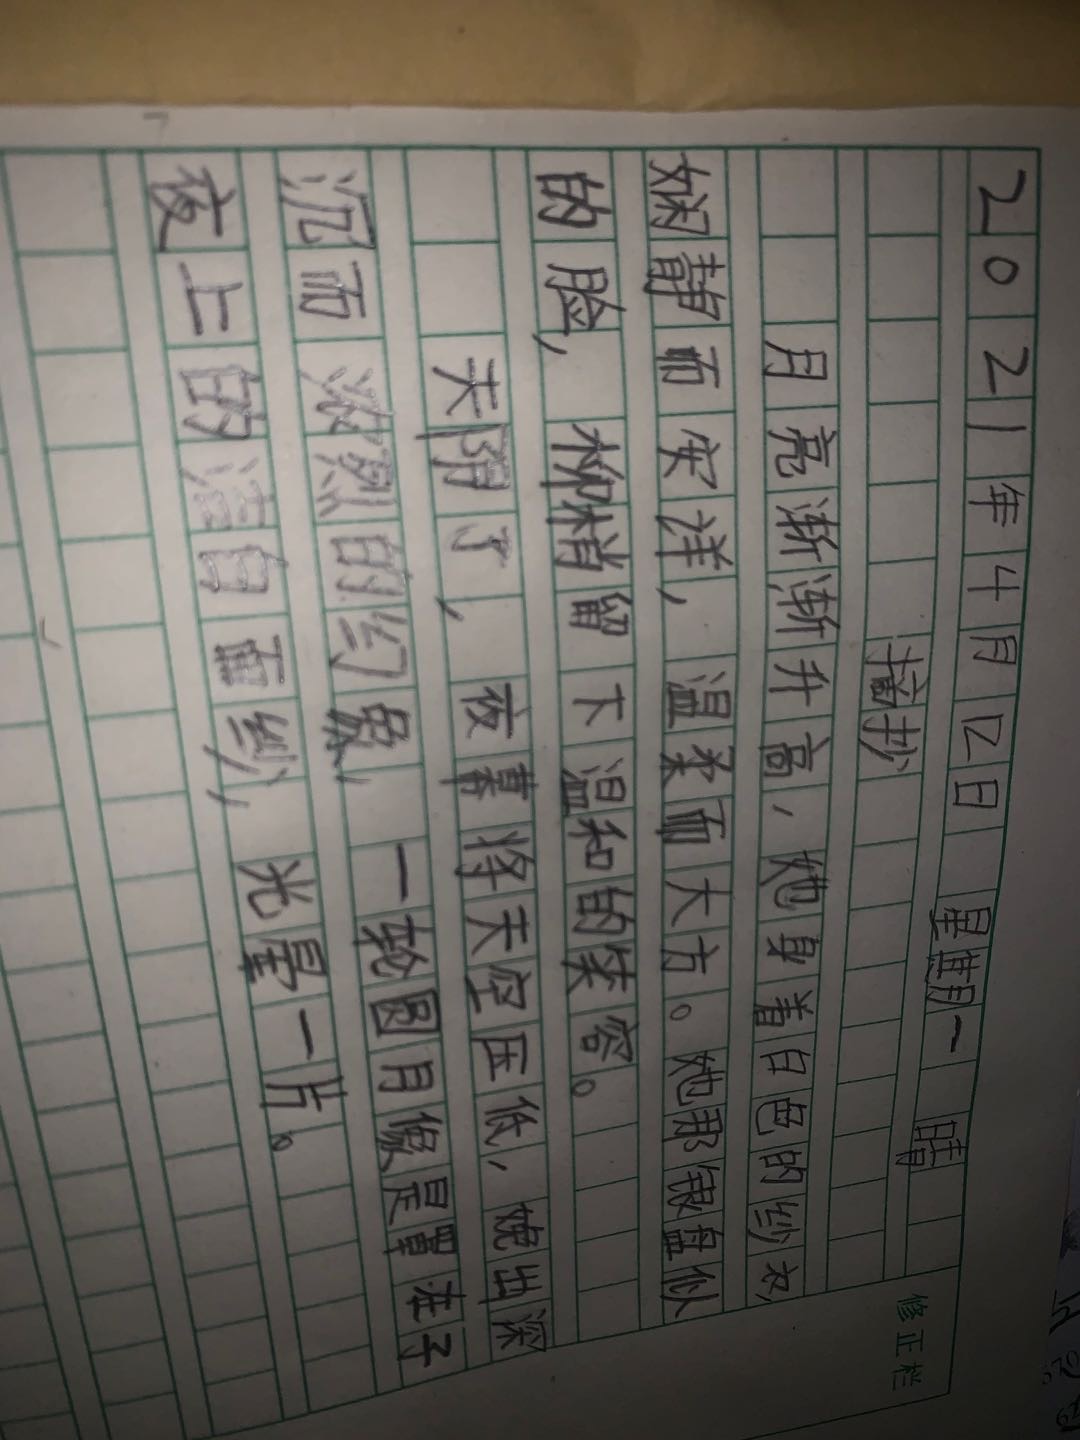 2021年4月12日 星期一 晴
摘抄
月亮渐渐升高，她身着白色的纱衣，
娴静而安洋，温柔而大方。她那银盘似
的脸，柳梢留下温和的笑容。
天阴了，夜幕将天空压低，掳出深
沉而浓烈的幻象，一轮圆月像是罩在子
夜上的洁白面纱，光晕一片。
修正栏